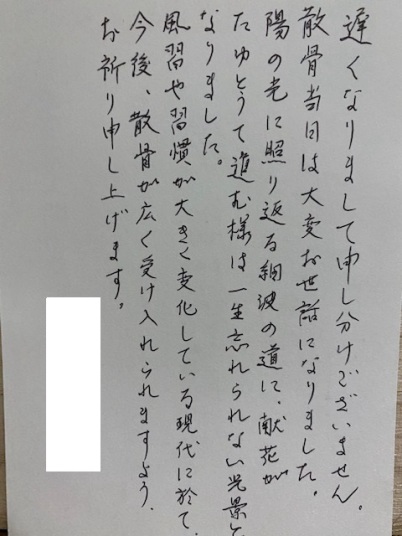 遅くなりまして申し分けございません。
散骨当日は大変お世話になりました。
陽の光に照り返る細波の道に、献花が
たゆとうて進む様は一生忘れられない光景と
なりました。
風習や習慣が大きく変化している現代に於て、
今後、散骨が広く受け入れられますよう、
お祈り申し上げます。